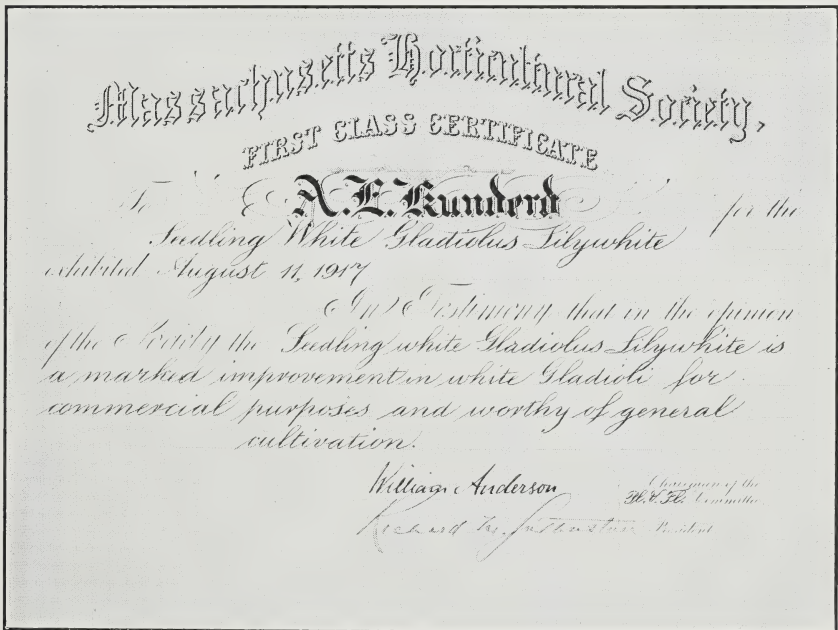 Massachusetts Horticultural Society,
FIRST CLASS CERTIFICATE
To A. E. Kunderd for the
Seedling White Gladiolus Lilywhite
exhibited August 11, 1917
In Testimony that in the opinion
of the Society the Seedling white Gladiolus Lilywhite is
a marked improvement in white Gladioli for
commercial purposes and worthy of general
cultivation.
William Anderson Chairman of the
Committee
Richard M. President